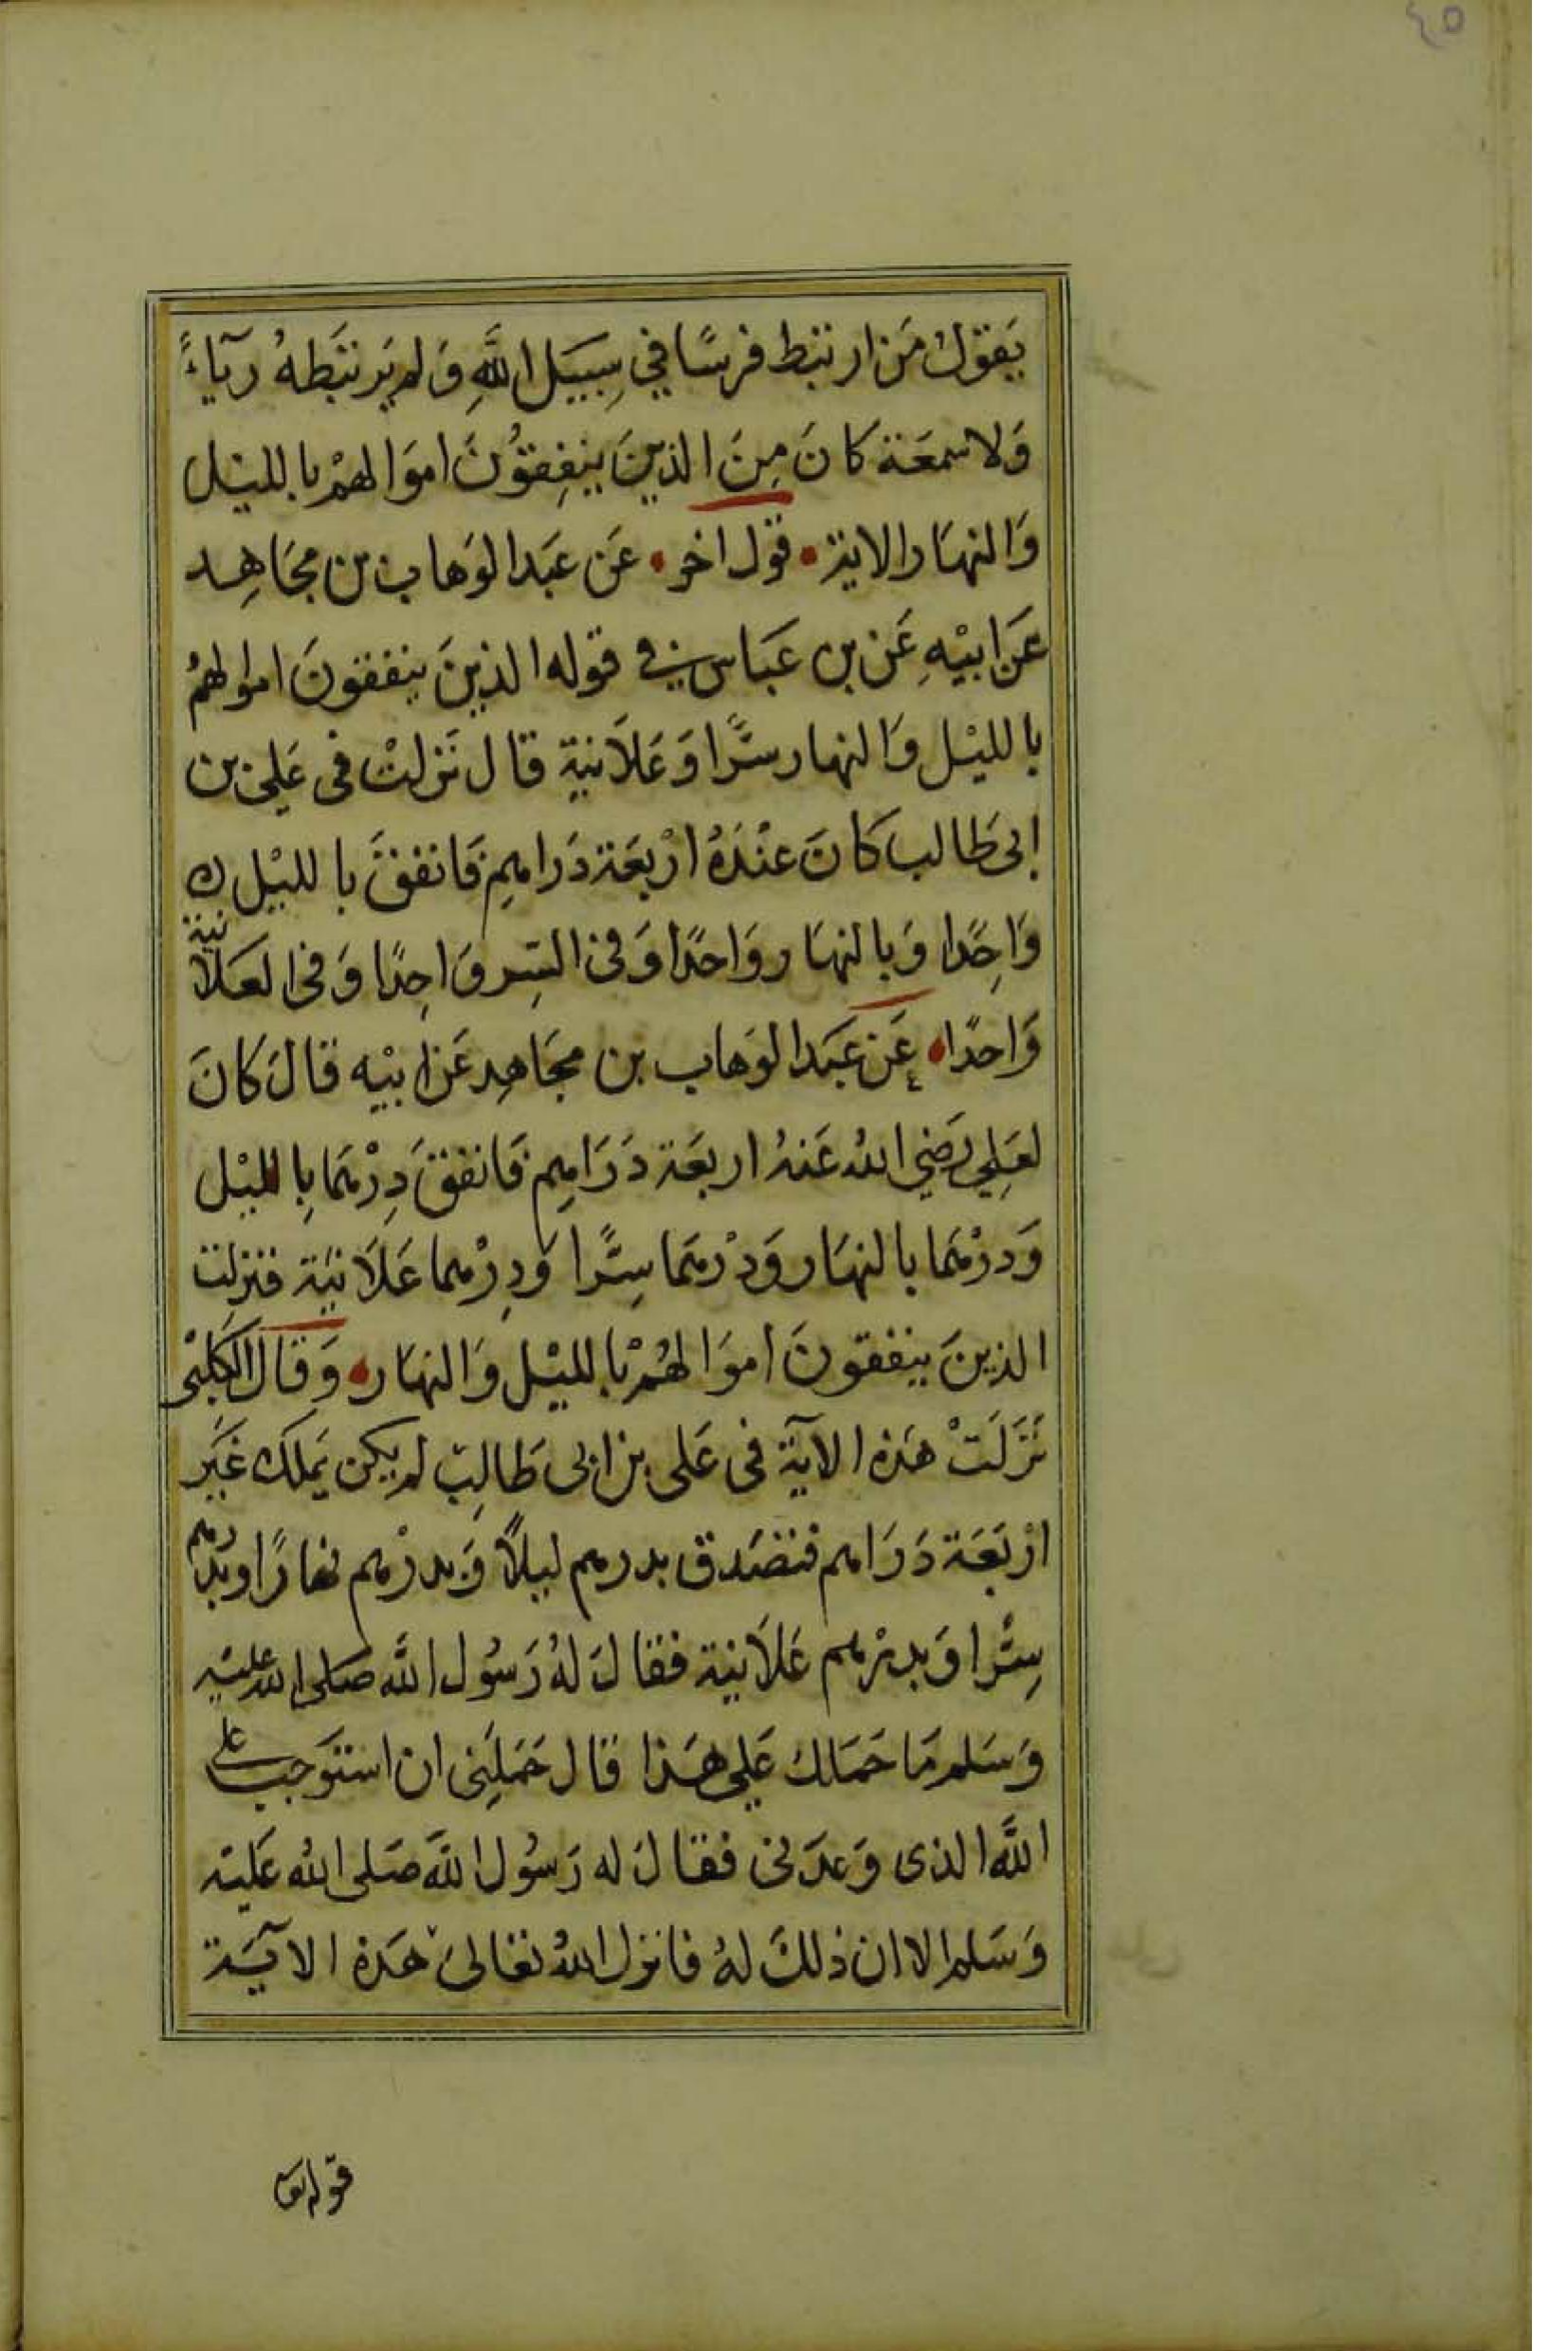 ٤٥
يَقول مَن ارتبط فرسًا في سِبيَل اللَّهِ وَلم يَرتبَطهُ ريآءً
وَلا سمعَة كانَ مِنَ الذينَ ينفِقوُنَ اموَالهمْ بالليْل
وَالنهَار الاية • قول اخر • عَن عبَد الوَهاب بن مجَاهِد
عَن ابيْهِ عَن بن عَباس في قوله الذينَ ينفقونَ اموالهمُ
بالليْل وَالنهار سرًّا وَعَلاَنيةِ قال نَزلتْ في عَلي بن
ابى طَالب كانَ عنْدَهُ ارْبعَة دَراهِم فَانفقَ بالليْل
وَاحِدًا وَبالنهَار وَاحدًا وَفي السِر وَاحِدًا وَفى العَلاَنية
وَاحدًا • عَن عبَد الوَهاب بن مجَاهِد عَن ابيْه قالَ كانَ
لعَلِي رَضي اللهُ عَنهُ اربعَة دَرَاهِم فَانفقَ دِرْهَمَا بِالليْل
وَدرْهمَا بالنهَار وَدرْهمَا سِرًّا وَدِرْهما عَلاَنيَة فنزلت
الذينَ ينفقونَ اموَالهُمْ بالليْل وَالنهَار • وَقالَ الكَلبْى
نَزَلَتْ هَذه الآيَة فى عَلى بن ابى طَالِب لم يكن يَملَك غَيَر
ارْبَعَة دَرَاهم فتصَدق بدرهم ليلاً وَبدرْهم نهارًا وبدرهم
سِرًّا وَبدرْهم عَلاَنية فقالَ لهُ رَسُول اللَّه صَلى الله عليَه
وَسَلم مَا حَمَلك عَلي هَذا قال حَملِنَى ان استوَجبَ على
اللَّه الذى وَعدَنى فقالَ له رَسُول اللَّه صَلى اللهُ عَليَه
وَسَلم الا ان ذلكَ لهُ فانزل اللهُ تعَالىَ هَذه الآيَة
قوله تعَ